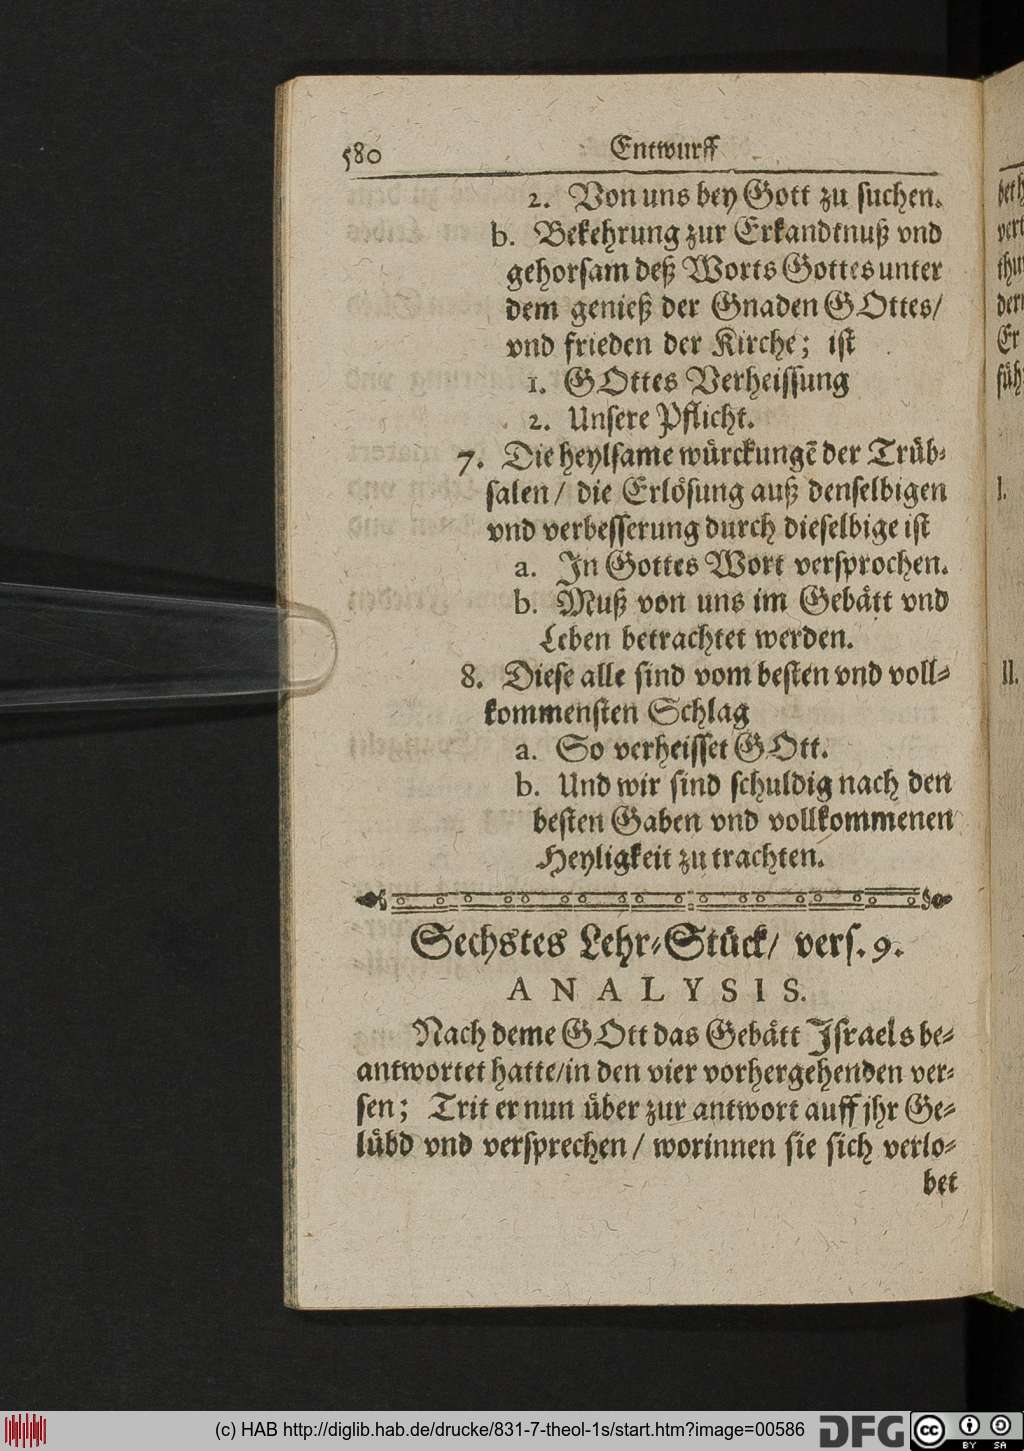 580 Entwurff
2. Von uns bey Gott zu suchen.
b. Bekehrung zur Erkandtnuß vnd
gehorsam deß Worts Gottes unter
dem genieß der Gnaden GOttes/
vnd frieden der Kirche; ist
1. GOttes Verheissung
2. Unsere Pflicht.
7. Die heylsame würckungẽ der Trüb-
salen/ die Erlösung auß denselbigen
vnd verbesserung durch dieselbige ist
a. In Gottes Wort versprochen.
b. Muß von uns im Gebätt vnd
Leben betrachtet werden.
8. Diese alle sind vom besten vnd voll-
kommensten Schlag
a. So verheisset GOtt.
b. Und wir sind schuldig nach den
besten Gaben vnd vollkommenen
Heyligkeit zu trachten.
Sechstes Lehr-Stück/ vers. 9.
ANALYSIS.
Nach deme GOtt das Gebätt Israels be-
antwortet hatte/in den vier vorhergehenden ver-
sen; Trit er nun über zur antwort auff jhr Ge-
lübd vnd versprechen/ worinnen sie sich verlo-
bet
I.
II.
(c) HAB http://diglib.hab.de/drucke/831-7-theol-1s/start.htm?image=00586 DFG cc BY SA